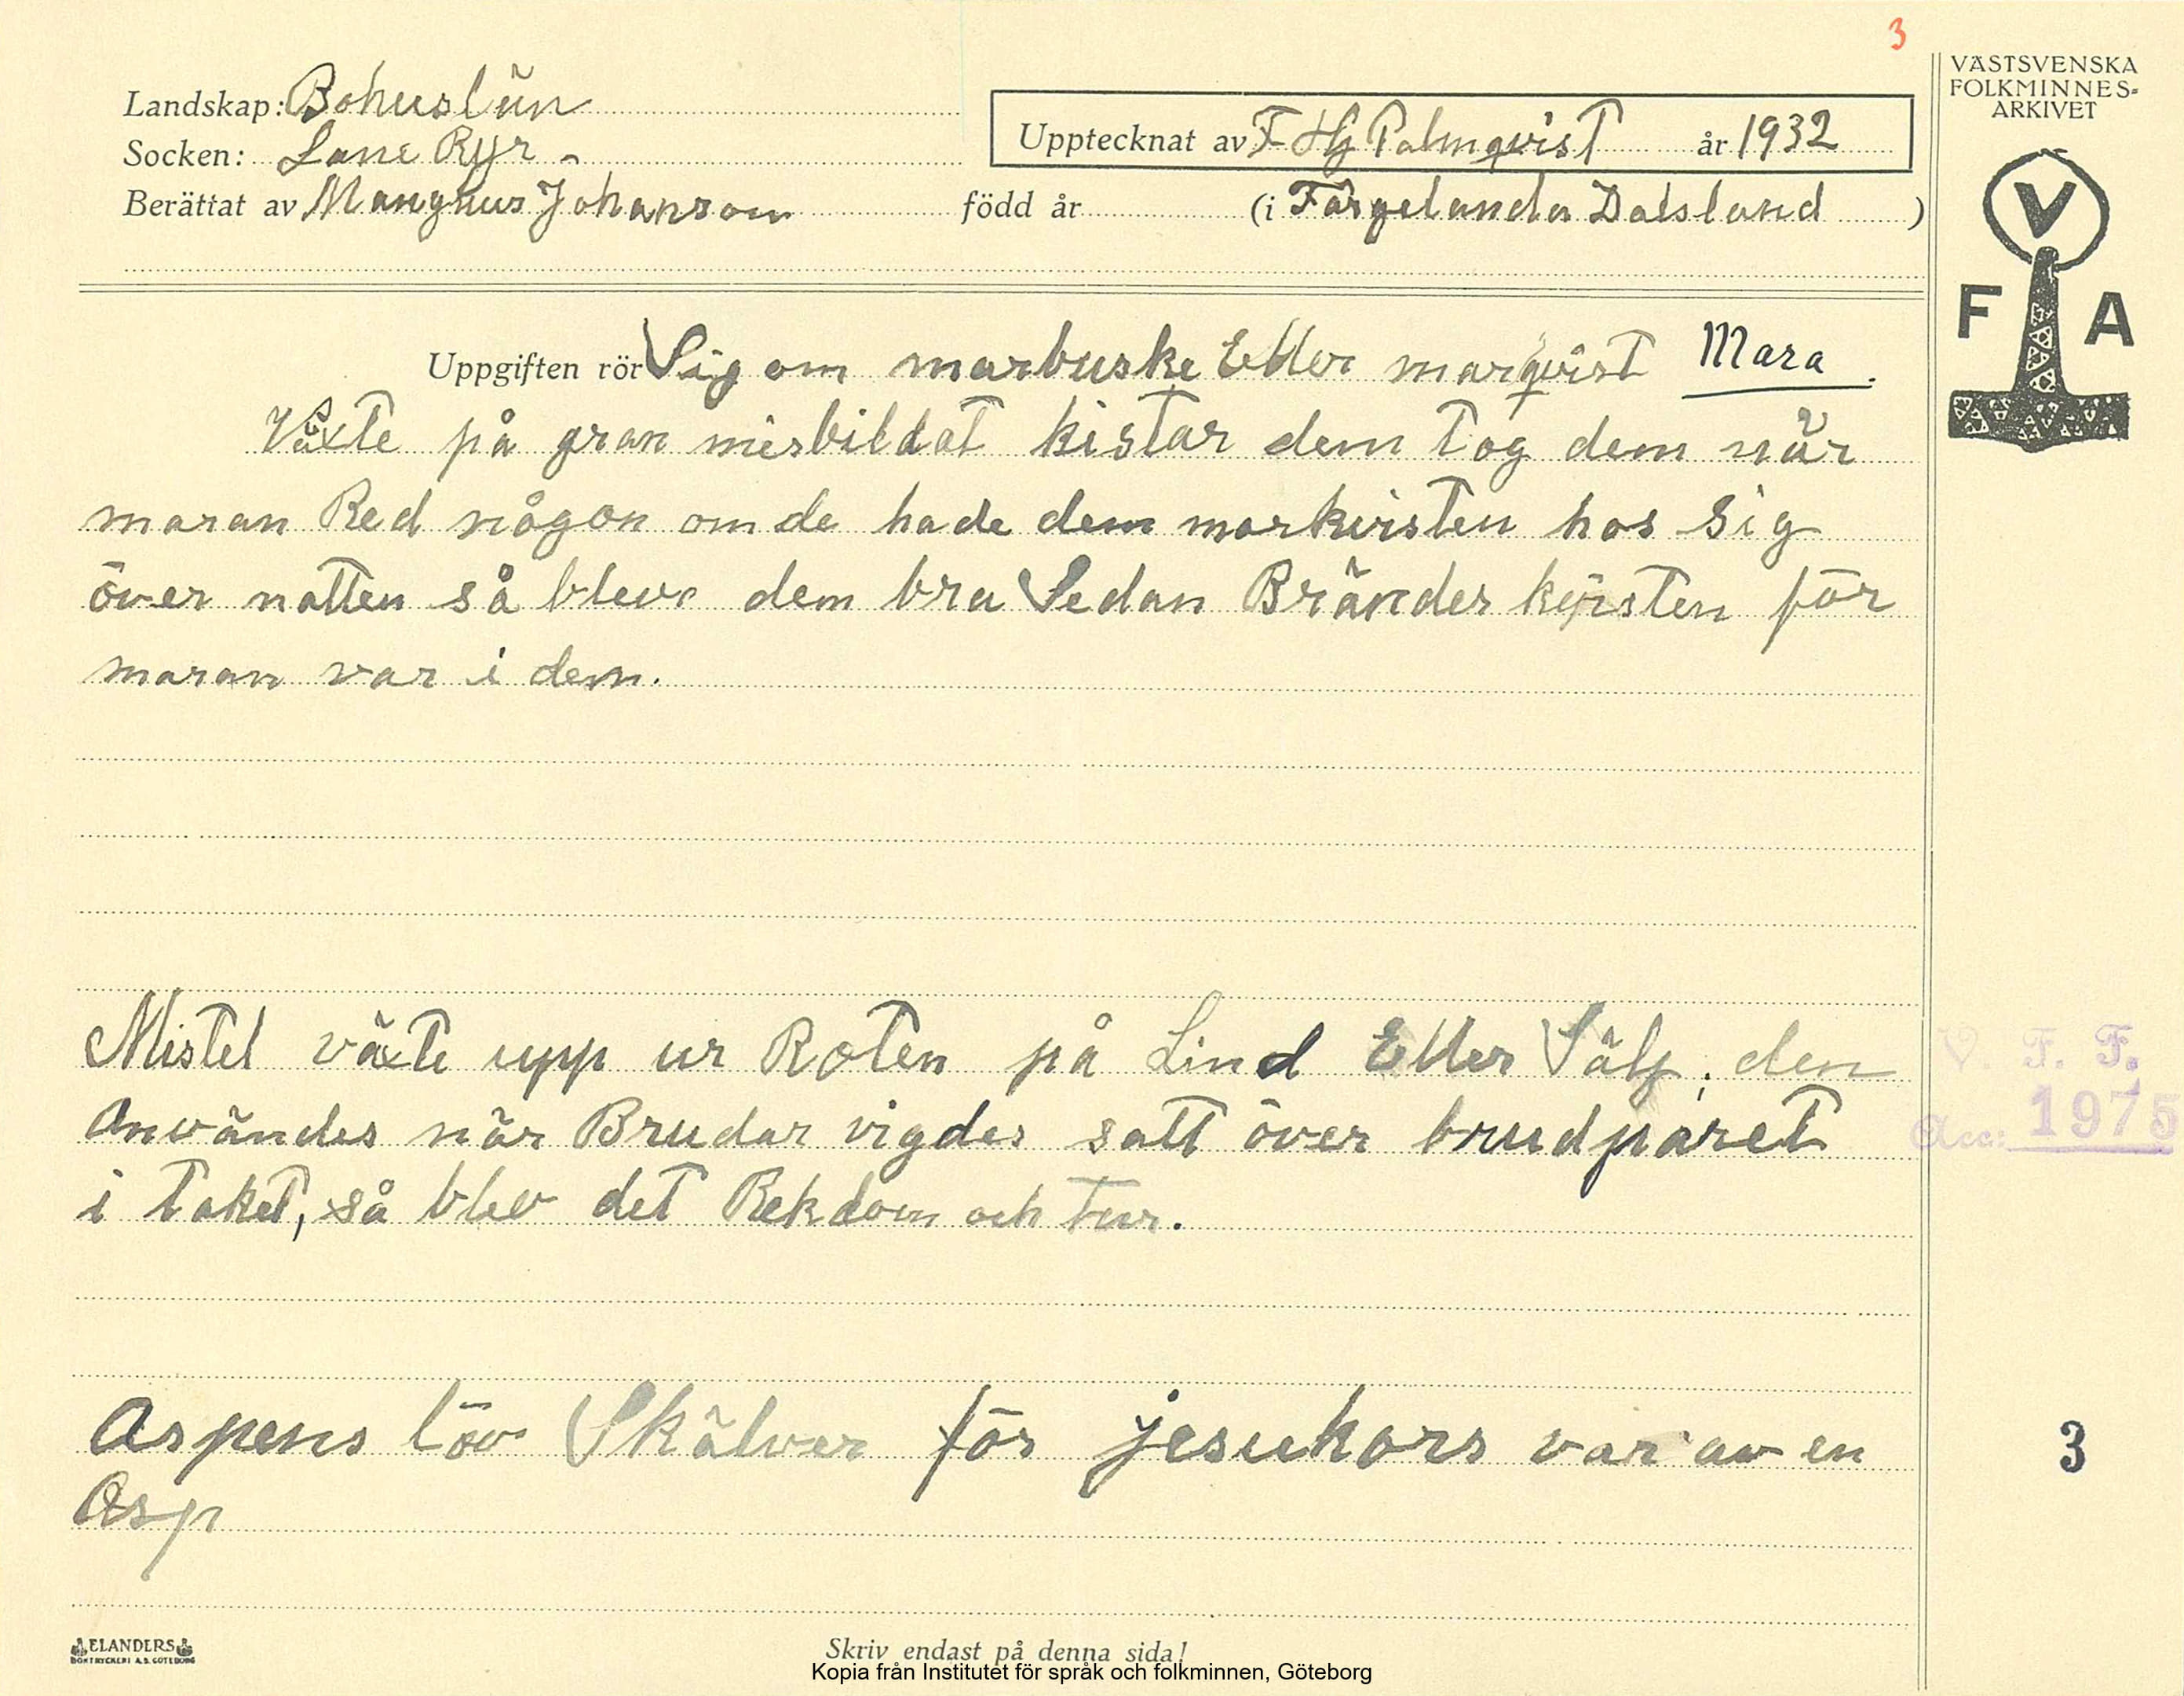 3
VÄSTSVENSKA
FOLKMINNES-
ARKIVET
Landskap: Bohuslän
Socken: Lane Ryr -
Upptecknat av F Hj Palmqvist år 1932
Berättat av Manghus Johanson född år (i Färgelanda Dalsland )
V
F A
Uppgiften rör Sig om marbuske Eller marqvist Mara.
Växte på gran misbildat kistar dem tog dem när
maran Red någon om de hade dem markvisten hos sig
över natten så blev dem bra Sedan Brändes kvisten för
maran var i dem.
Mistel växte upp ur Roten på Lind Eller Sälj. den
Användes när Brudar vigdes satt över brudparet
i taket, så blev det Rekdom och tur.
V F. F.
Acc: 1975
Aspens löv Skälver för jesukors var av en
Asp
3
ELANDERS
BOKTRYCKERI A.B. GÖTEBORG
Skriv endast på denna sida!
Kopia från Institutet för språk och folkminnen, Göteborg